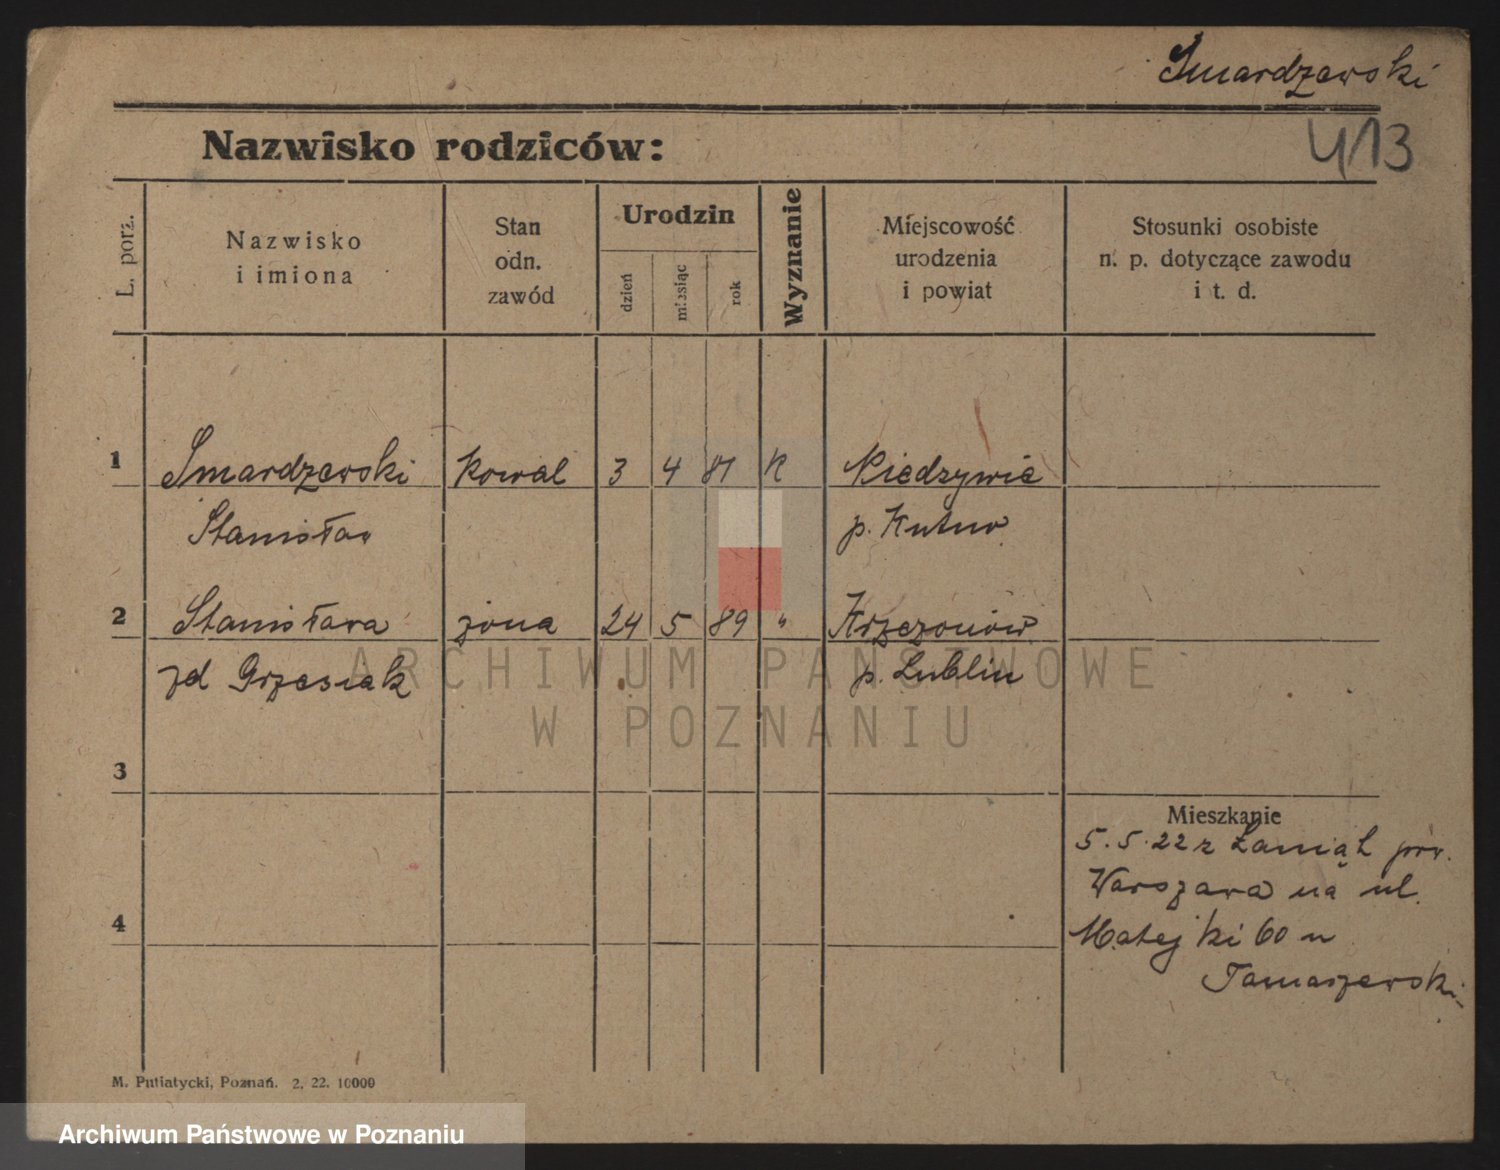 Smardzewski
413
Nazwisko rodziców:
L. porz.
Nazwisko
i imiona
Stan
odn.
zawód
Urodzin
dzień
miesiąc
rok
Wyznanie
Miejscowość
urodzenia
i powiat
Stosunki osobiste
n. p. dotyczące zawodu
i t. d.
1 Smardzewski Kowal 3 4 81 K Niedrzywie
Stanisław p. Kutno
2 Stanisława żona 24 5 89 " Krzczonów
zd Grzesiak p. Lublin
3
4
Mieszkanie
5.5.22 z Łaniąt prw.
Warszawa na ul.
Matejki 60 u
Tomaszewski
M. Putiatycki, Poznań. 2. 22. 10000
ARCHIWUM PAŃSTWOWE
W POZNANIU
Archiwum Państwowe w Poznaniu